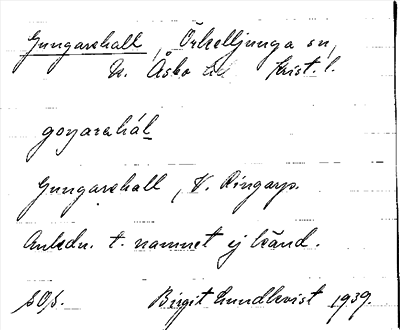 Gungarehall, Örkelljunga sn,
N. Åsbo hd Krist. l.
Gungarehall, V. Ringarp.
Anledn. t. namnet ej känd.
Birgit Lundkvist 1939.